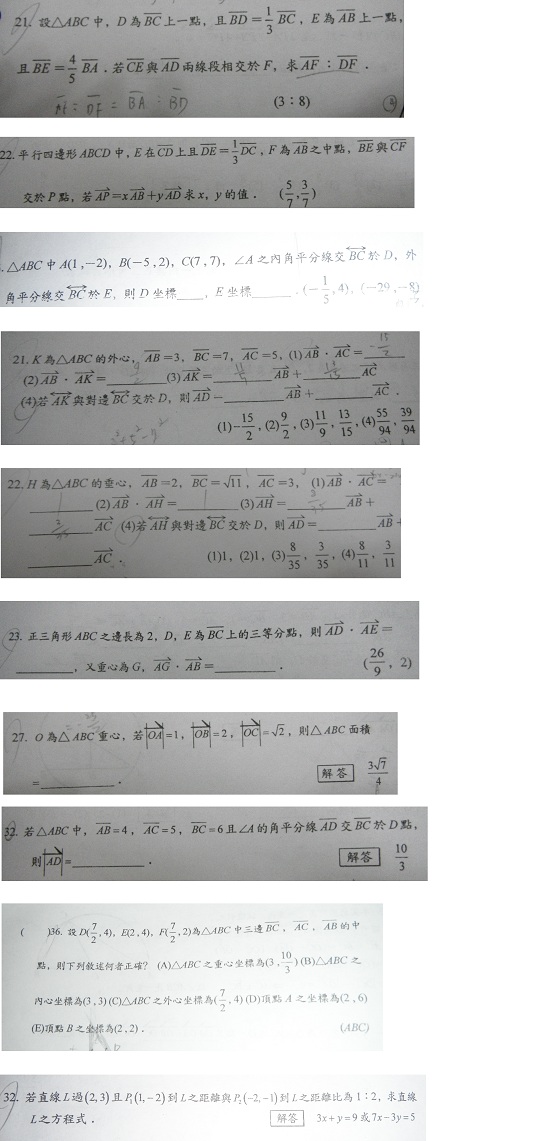 21. 設△ABC 中, D 為 BC 上一點, 且 BD = 1/3 BC, E 為 AB 上一點,
且 BE = 4/5 BA. 若 CE 與 AD 兩線段相交於 F, 求 AF : DF.
(3:8)
22. 平行四邊形 ABCD 中, E 在 CD 上且 DE = 1/3 DC, F 為 AB 之中點, BE 與 CF
交於 P 點, 若 AP = x AB + y AD 求 x, y 的值. (5/7, 3/7)
. △ABC 中 A(1,-2), B(-5,2), C(7,7), ∠A 之內角平分線交 BC 於 D, 外
角平分線交 BC 於 E, 則 D 坐標____, E 坐標______. (-1/5, 4), (-29, -8)
21. K 為△ABC 的外心, AB=3, BC=7, AC=5, (1) AB · AC = ______
(2) AB · AK = ________ (3) AK = ________ AB + ________ AC
(4)若 AK 與對邊 BC 交於 D, 則 AD = ________ AB + ________ AC.
(1) -15/2, (2) 9/2, (3) 11/9, 13/15, (4) 55/94, 39/94
22. H 為△ABC 的垂心, AB=2, BC=√11, AC=3, (1) AB · AC =
________ (2) AB · AH = ________ (3) AH = ________ AB +
________ AC (4)若 AH 與對邊 BC 交於 D, 則 AD = ________ AB +
________ AC. (1)1, (2)1, (3) 8/35, 3/35, (4) 8/11, 3/11
23. 正三角形 ABC 之邊長為 2, D, E 為 BC 上的三等分點, 則 AD · AE =
________, 又重心為 G, AG · AB = ________. (26/9, 2)
27. O 為△ABC 重心, 若 |OA|=1, |OB|=2, |OC|=√2, 則△ABC 面積
= __________. 解答 3√7/4
32. 若△ABC 中, AB=4, AC=5, BC=6 且∠A 的角平分線 AD 交 BC 於 D 點,
則 |AD| = __________. 解答 10/3
( )36. 設 D(7/2,4), E(2,4), F(7/2,2)為△ABC 中三邊 BC, AC, AB 的中
點, 則下列敘述何者正確? (A)△ABC 之重心坐標為(3, 10/3) (B)△ABC 之
內心坐標為(3,3) (C)△ABC 之外心坐標為(7/2,4) (D)頂點 A 之坐標為(2,6)
(E)頂點 B 之坐標為(2,2). (ABC)
32. 若直線 L 過(2,3)且 P₁(1,-2)到 L 之距離與 P₂(-2,-1)到 L 之距離比為 1:2, 求直線
L 之方程式. 解答 3x+y=9 或 7x-3y=5